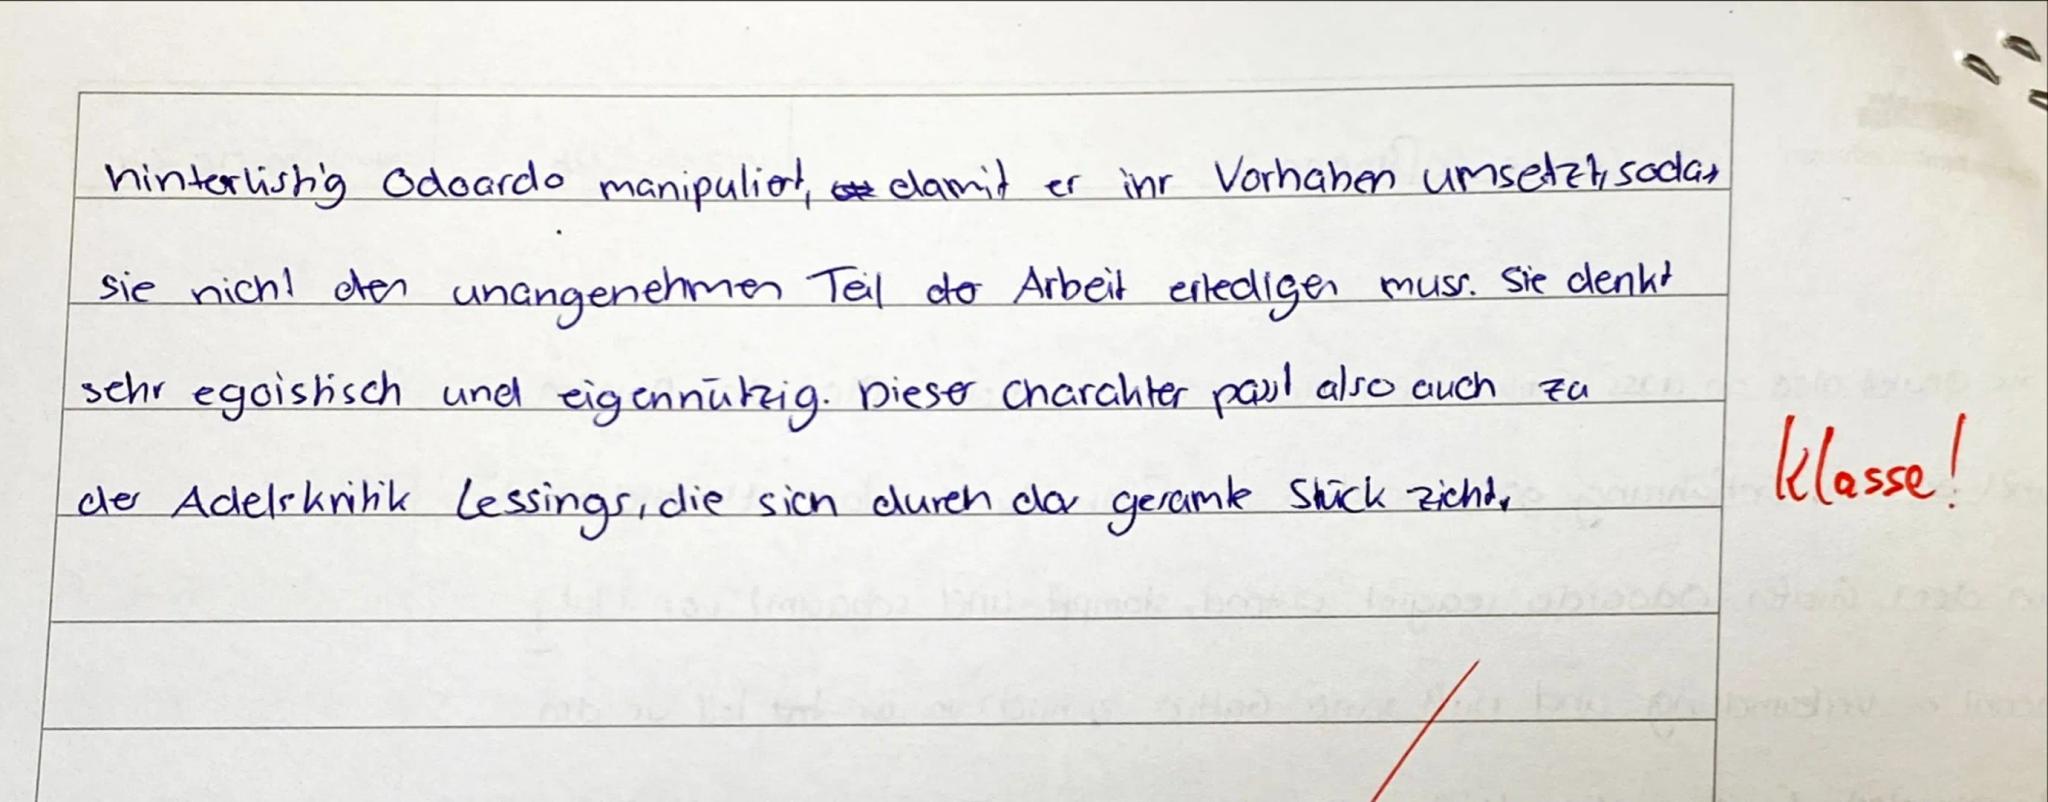 hinterlistig Odoardo manipuliert, damit er ihr Vorhaben umsetzt, sodass
sie nicht den unangenehmen Teil der Arbeit erledigen muss. Sie denkt
sehr egoistisch und eigennützig. Dieser Charakter passt also auch zu
der Adelskritik Lessings, die sich durch das gesamte Stück zieht.
Klasse!